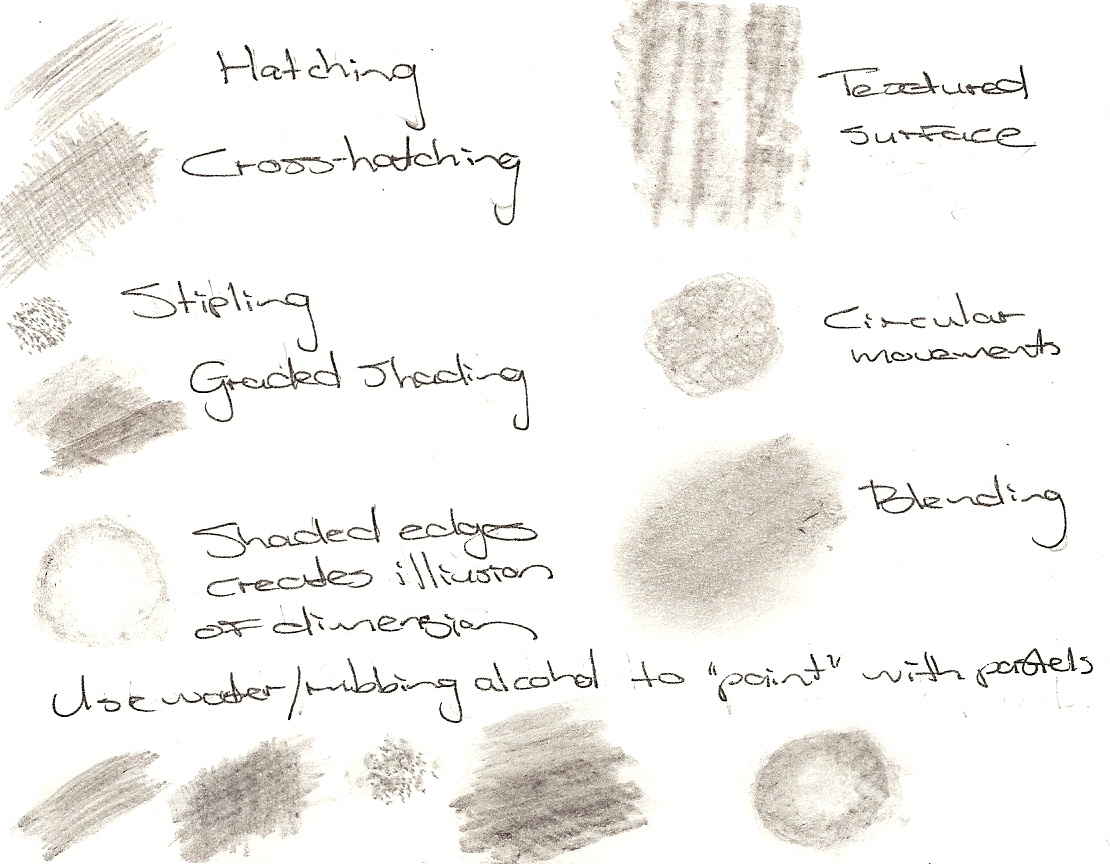 Hatching
Cross-hatching
Stipling
Graded Shading
Shaded edges
creates illusion
of dimension
Textured
surface
Circular
movements
Blending
Use water/rubbing alcohol to "paint" with pastels